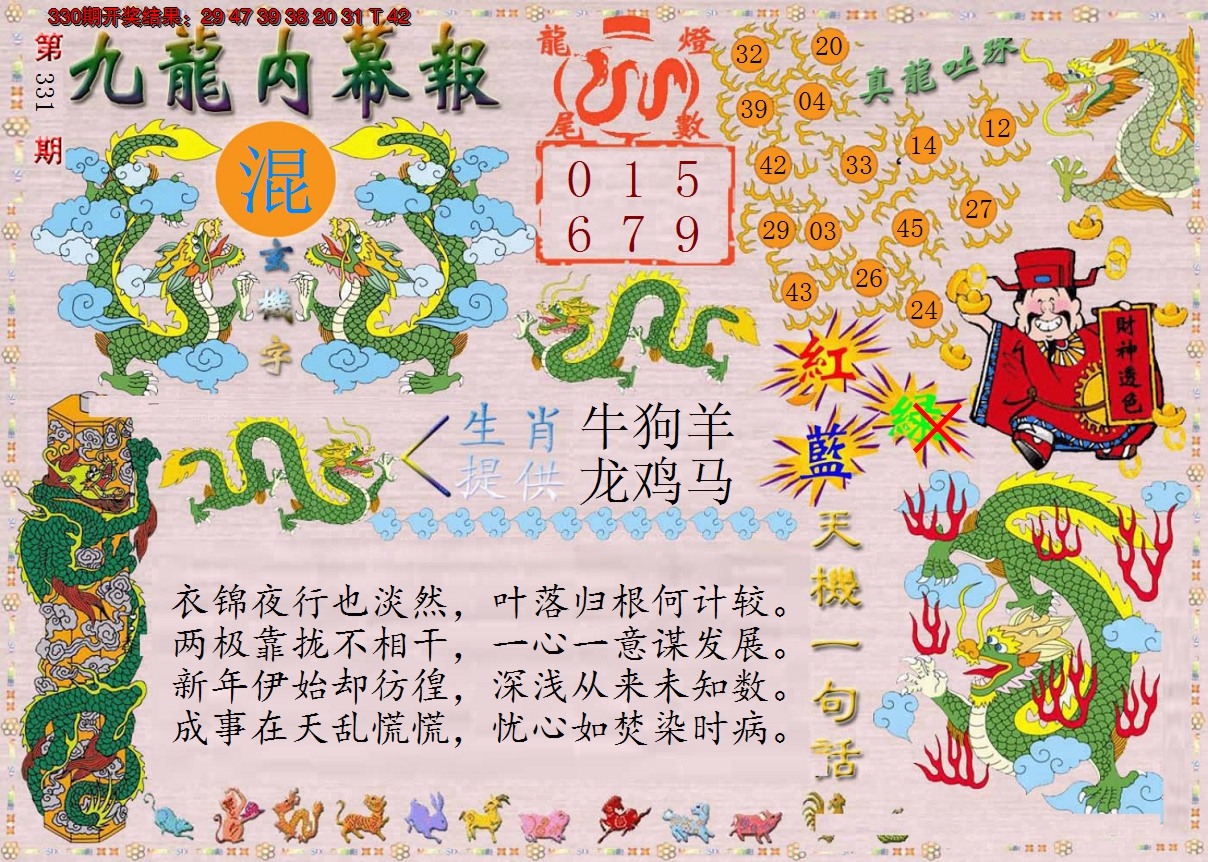 330期开奖结果：29 47 39 38 20 31 T 42
第331期
九龍内幕報
混
玄機字
龍燈
尾數
0 1 5
6 7 9
真龍吐珠
32 20
39 04
42 33 14 12
29 03 45 27
43 26 24
財神透色
紅
綠
藍
生肖 牛狗羊
提供 龙鸡马
天機一句話
衣锦夜行也淡然，叶落归根何计较。
两极靠拢不相干，一心一意谋发展。
新年伊始却彷徨，深浅从来未知数。
成事在天乱慌慌，忧心如焚染时病。